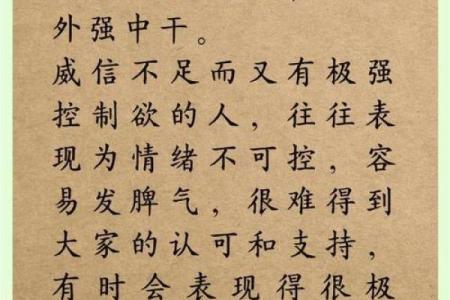 外强中干。
威信不足而又有极强
控制欲的人，往往表
现为情绪不可控，容
易发脾气，很难得到
大家的认可和支持，
有时会表现得很极